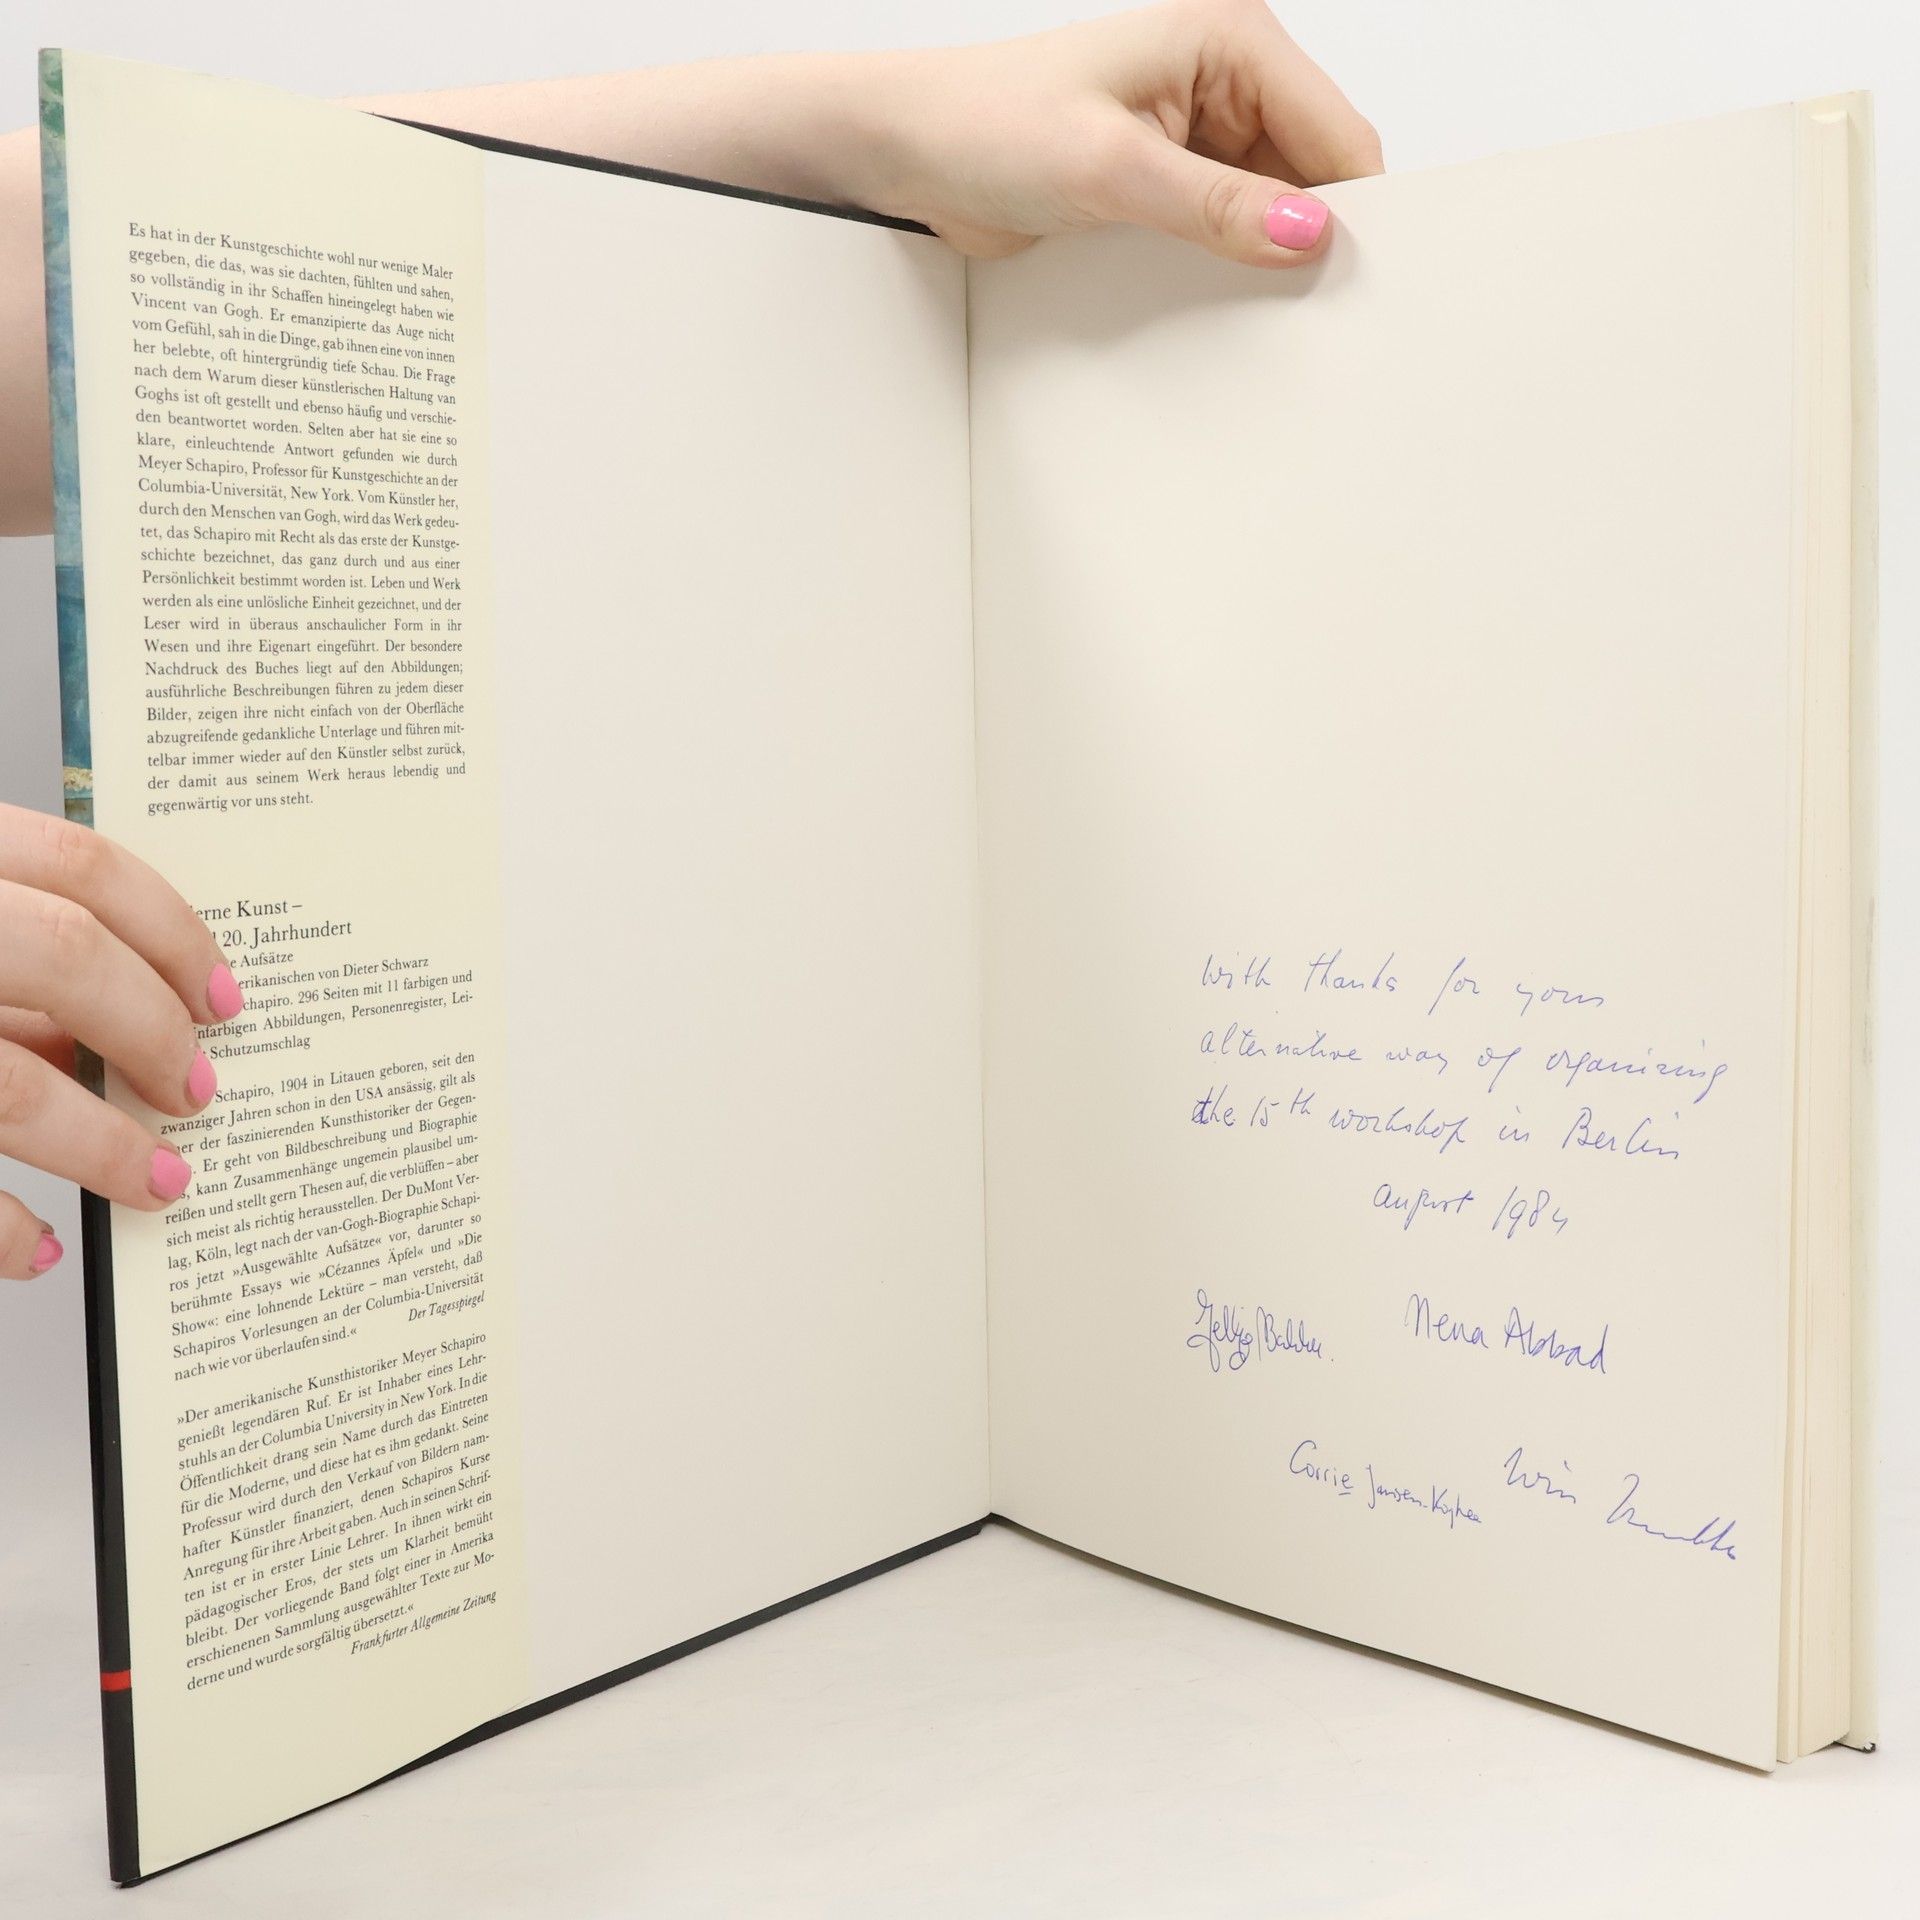 Es hat in der Kunstgeschichte wohl nur wenige Maler
gegeben, die das, was sie dachten, fühlten und sahen,
so vollständig in ihr Schaffen hineingelegt haben wie
Vincent van Gogh. Er emanzipierte das Auge nicht
vom Gefühl, sah in die Dinge, gab ihnen eine von innen
her belebte, oft hintergründig tiefe Schau. Die Frage
nach dem Warum dieser künstlerischen Haltung van
Goghs ist oft gestellt und ebenso häufig und verschie-
den beantwortet worden. Selten aber hat sie eine so
klare, einleuchtende Antwort gefunden wie durch
Meyer Schapiro, Professor für Kunstgeschichte an der
Columbia-Universität, New York. Vom Künstler her,
durch den Menschen van Gogh, wird das Werk gedeu-
tet, das Schapiro mit Recht als das erste der Kunstge-
schichte bezeichnet, das ganz durch und aus einer
Persönlichkeit bestimmt worden ist. Leben und Werk
werden als eine unlösliche Einheit gezeichnet, und der
Leser wird in überaus anschaulicher Form in ihr
Wesen und ihre Eigenart eingeführt. Der besondere
Nachdruck des Buches liegt auf den Abbildungen;
ausführliche Beschreibungen führen zu jedem dieser
Bilder, zeigen ihre nicht einfach von der Oberfläche
abzugreifende gedankliche Unterlage und führen mit-
telbar immer wieder auf den Künstler selbst zurück,
der damit aus seinem Werk heraus lebendig und
gegenwärtig vor uns steht.
erne Kunst –
20. Jahrhundert
e Aufsätze
erikanischen von Dieter Schwarz
chapiro. 296 Seiten mit 11 farbigen und
nfarbigen Abbildungen, Personenregister, Lei-
Schutzumschlag
Schapiro, 1904 in Litauen geboren, seit den
zwanziger Jahren schon in den USA ansässig, gilt als
er der faszinierenden Kunsthistoriker der Gegen-
. Er geht von Bildbeschreibung und Biographie
s, kann Zusammenhänge ungemein plausibel um-
reißen und stellt gern Thesen auf, die verblüffen – aber
sich meist als richtig herausstellen. Der DuMont Ver-
lag, Köln, legt nach der van-Gogh-Biographie Schapi-
ros jetzt »Ausgewählte Aufsätze« vor, darunter so
berühmte Essays wie »Cézannes Äpfel« und »Die
Show«: eine lohnende Lektüre – man versteht, daß
Schapiros Vorlesungen an der Columbia-Universität
nach wie vor überlaufen sind.« Der Tagesspiegel
»Der amerikanische Kunsthistoriker Meyer Schapiro
genießt legendären Ruf. Er ist Inhaber eines Lehr-
stuhls an der Columbia University in New York. In die
Öffentlichkeit drang sein Name durch das Eintreten
für die Moderne, und diese hat es ihm gedankt. Seine
Professur wird durch den Verkauf von Bildern nam-
hafter Künstler finanziert, denen Schapiros Kurse
Anregung für ihre Arbeit gaben. Auch in seinen Schrif-
ten ist er in erster Linie Lehrer. In ihnen wirkt ein
pädagogischer Eros, der stets um Klarheit bemüht
bleibt. Der vorliegende Band folgt einer in Amerika
erschienenen Sammlung ausgewählter Texte zur Mo-
derne und wurde sorgfältig übersetzt.«
Frankfurter Allgemeine Zeitung
With thanks for your
alternative way of organizing
the 15th workshop in Berlin
august 1984
Nena Abbad
Corrie Jansen-
Wim